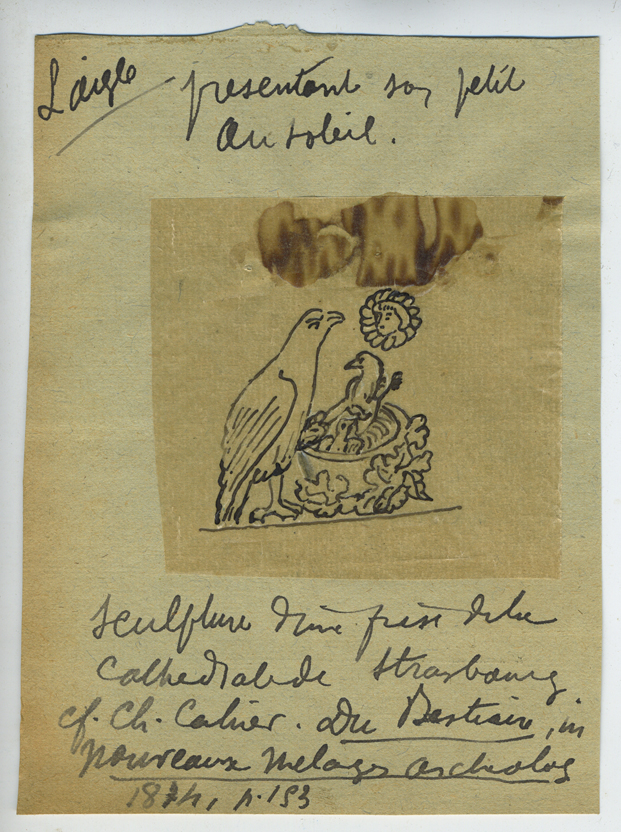 L'aigle présentant son petit
au soleil.
Sculpture d'une frise de la
Cathédrale de Strasbourg
cf. Ch. Cahier. Du Bestiaire, in
nouveaux melages archeolog
1874, p. 153